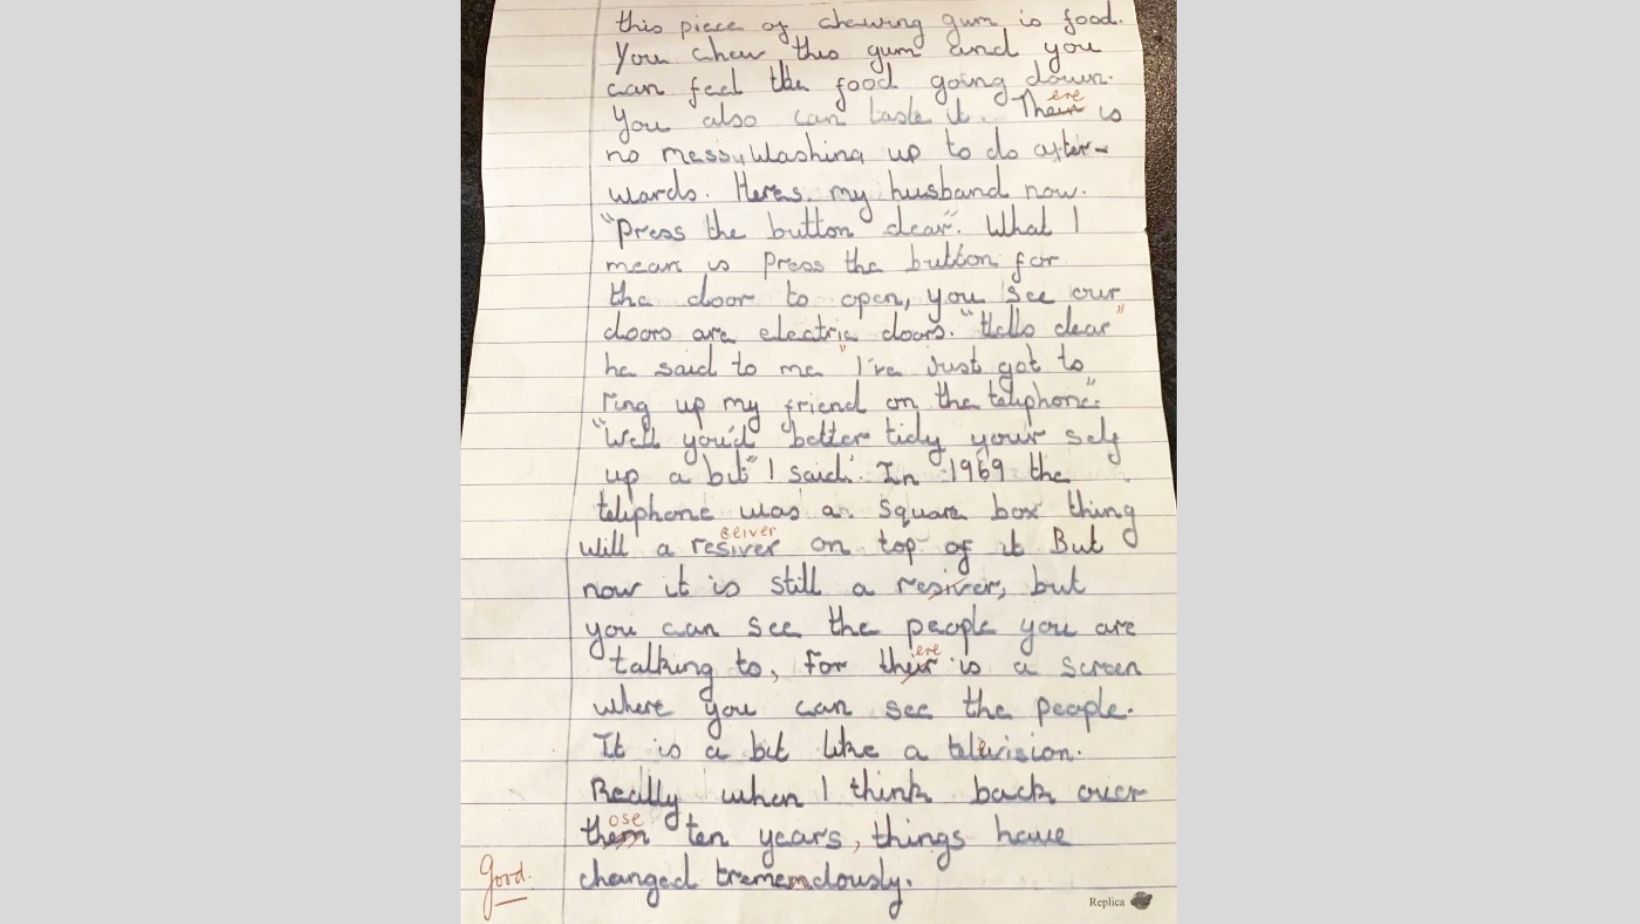 this piece of chewing gum is food.
You chew this gum and you
can feel the food going down.
ere
You also can taste it. Their is
no messy Washing up to do after-
wards. Heres. my husband now.
"Press the button dear". What I
mean is Press the button for
the door to open, you see our
doors are electric doors. "Hello dear"
he said to me "I've Just got to
ring up my friend on the teliphone."
"Well you'd better tidy your self
up a bit" I said. In 1969 the
teliphone was a square box thing
ceiver
will a resiver on top of it But
now it is still a resiver, but
you can see the people you are
ere
talking to, for their is a screen
where you can see the people.
It is a bit like a television.
Really when I think back over
ose
them ten years, things have
Good.
changed tremendously.
Replica